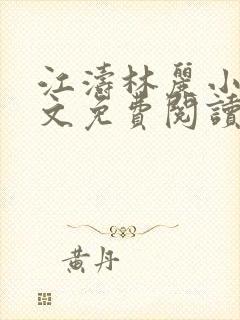 江濤林麗小
文免費閱讀
黃丹